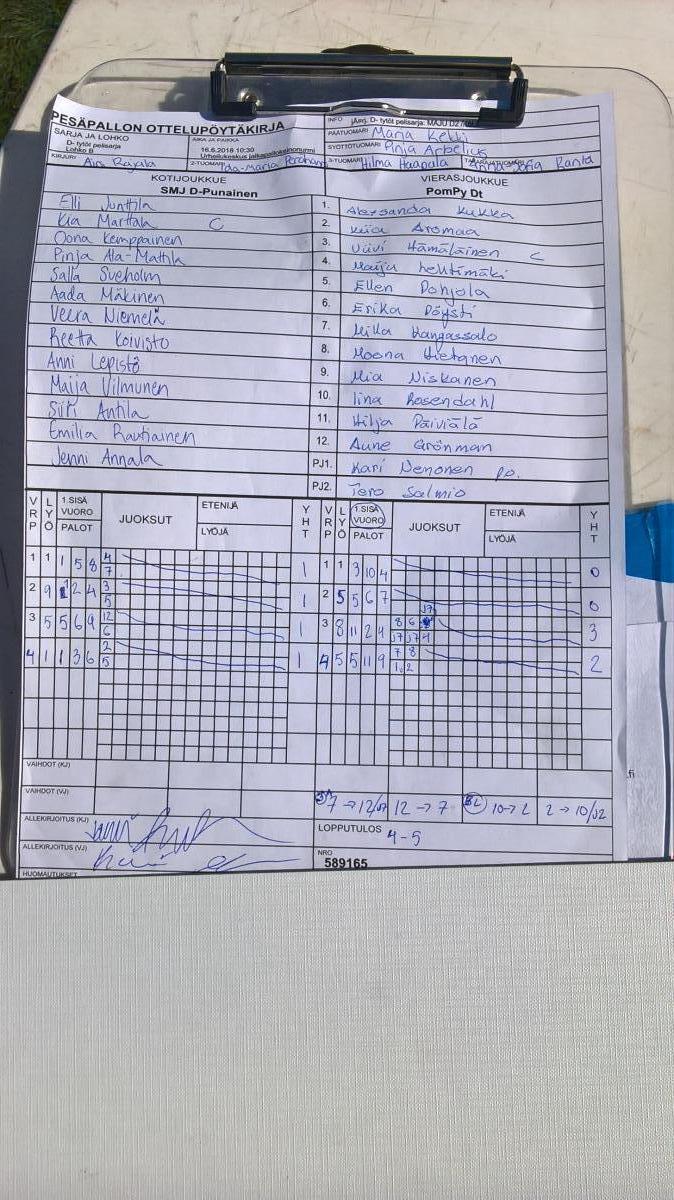 PESÄPALLON OTTELUPÖYTÄKIRJA
INFO
D- tytöt pelisarja: MAJU
SARJA JA LOHKO
D- tytöt pelisarja
Lohko B
AIKA JA PAIKKA
16.6.2018 10:30
Urheilukeskus
PÄÄTUOMARI Marja Kekki
SYÖTTÖTUOMARI Pinja Arbelius
KIRJURI Airi Rajala
2-TUOMARI Ida-Maria
3-TUOMARI Hilma Haapala
Anna-Sofia Ranta
KOTIJOUKKUE
SMJ D-Punainen
VIERASJOUKKUE
PomPy Dt
Elli Junttila
1. Aleksandra Kukka
Kia Marttala C
2. Kiia Aromaa
Oona Kemppainen
3. Viivi Hämäläinen C
Pinja Ala-Mattila
4. Maija Lehtimäki
Salla Sveholm
5. Ellen Pohjola
Aada Mäkinen
6. Erika Pöysti
Veera Niemelä
7. Milla Kangassalo
Reetta Koivisto
8. Moona Hietanen
Anni Lepistö
9. Mia Niskanen
Maija Vilmunen
10. Iina Rosendahl
Siiri Antila
11. Hilja Päiviälä
Emilia Rautiainen
12. Aune Grönman
Jenni Annala
PJ1. Kari Nenonen po.
PJ2. Tero Salmio
VRP LYÖ 1.SISÄ VUORO PALOT JUOKSUT ETENIJÄ LYÖJÄ YHT
VRP LYÖ 1.SISÄ VUORO PALOT JUOKSUT ETENIJÄ LYÖJÄ YHT
1 1 1 5 8 4 7 1
1 1 3 10 4 0
2 9 1 2 4 3 5 1
2 5 5 6 7 0
3 5 5 6 9 12 6 1
3 8 11 2 4 8 6 J7 J7 J7 4 3
4 1 1 3 6 2 5 1
4 5 5 11 9 7 8 1 2 2
VAIHDOT (KJ)
VAIHDOT (VJ)
7 → 12/J7 12 → 7 10 → 2 2 → 10/J2
ALLEKIRJOITUS (KJ)
LOPPUTULOS 4-5
ALLEKIRJOITUS (VJ)
NRO
589165
HUOMAUTUKSET